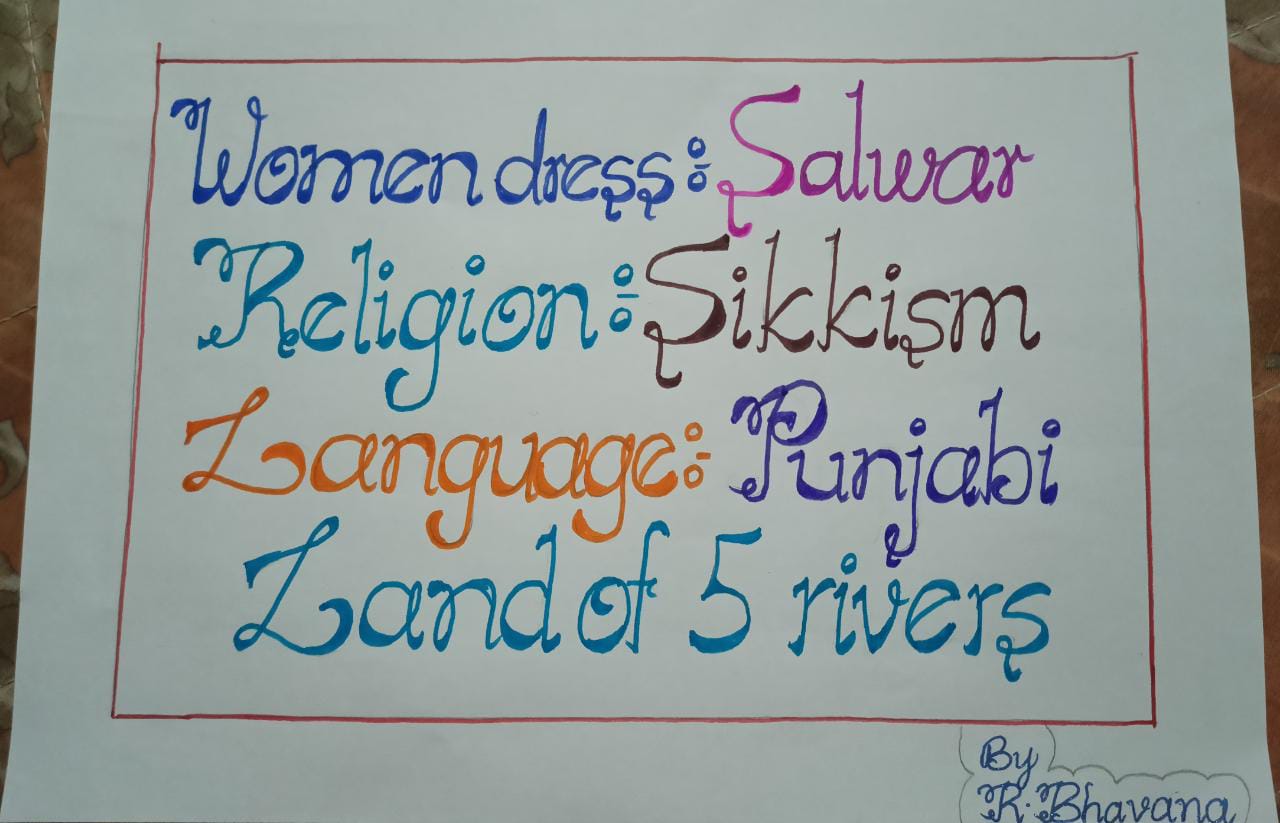 Women dress:- Salwar
Religion:- Sikkism
Language:- Punjabi
Land of 5 rivers
By
R. Bhavana